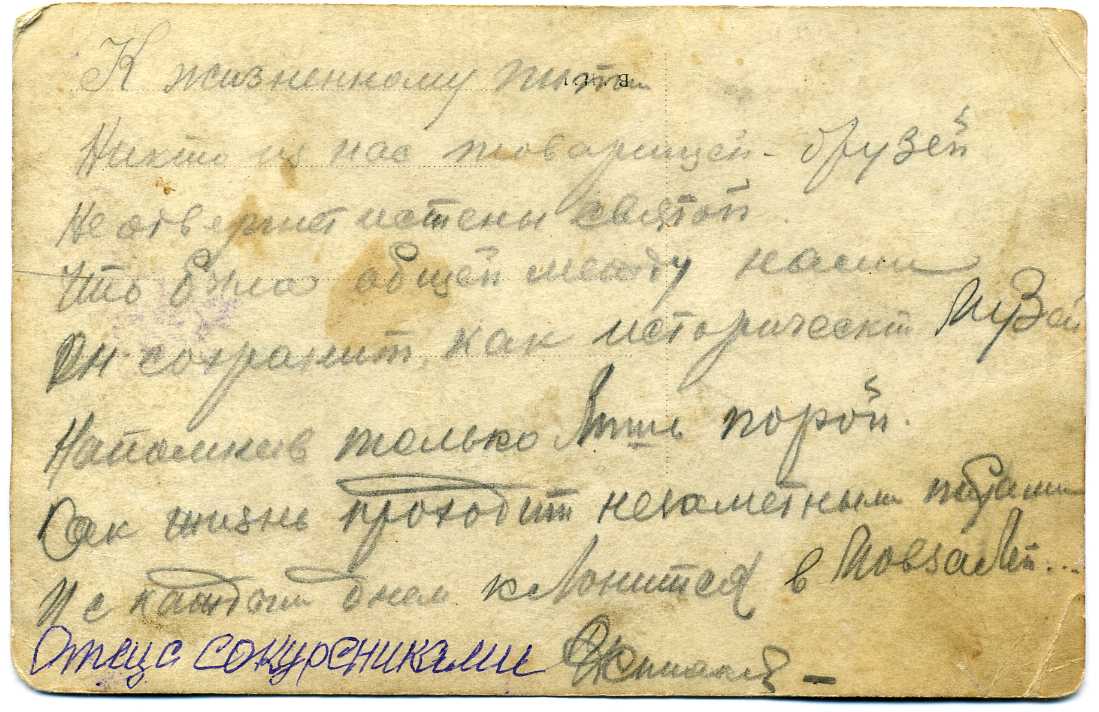 К жизненному пути
Никто из нас товарищей-друзей
Не отвергнет истены святой.
Что было общей между нами
Он сохранит как исторический музей
Напомнив только лишь порой.
Как жизнь проходит незаметными
И с каждым днем клонится в
Отец с сокурсниками